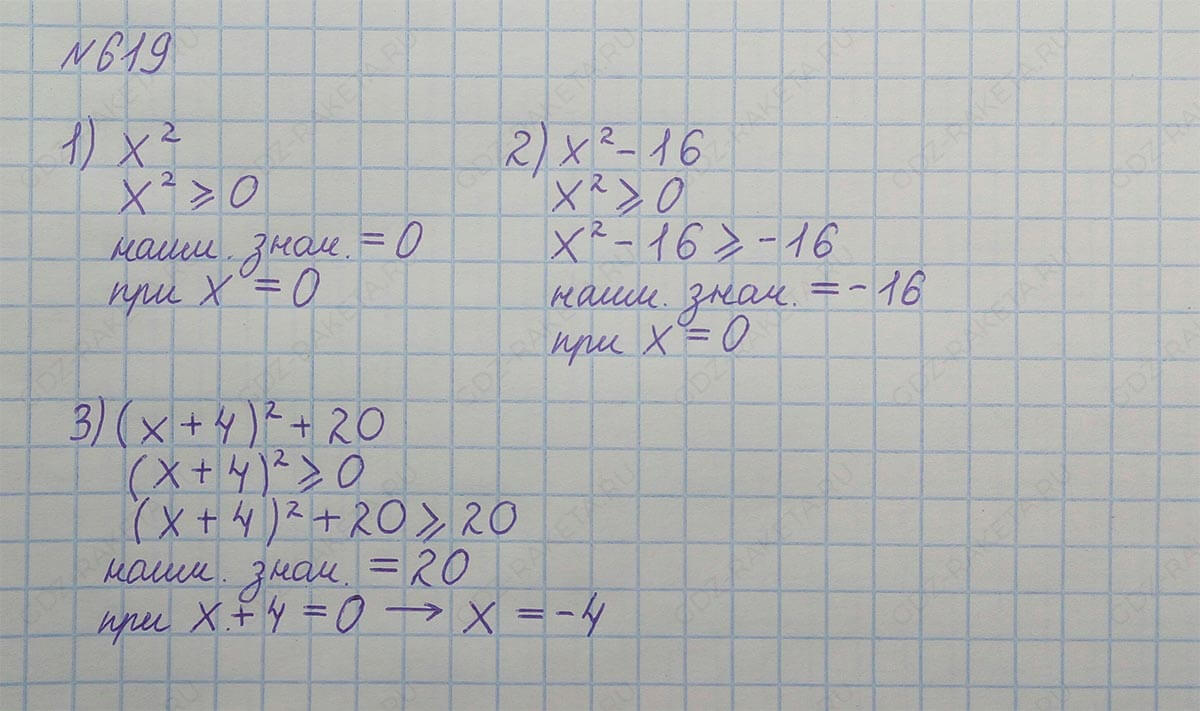 №619
1) x²
x² ⩾ 0
наим. знач. = 0
при x = 0
2) x² - 16
x² ⩾ 0
x² - 16 ⩾ -16
наим. знач. = -16
при x = 0
3) (x + 4)² + 20
(x + 4)² ⩾ 0
(x + 4)² + 20 ⩾ 20
наим. знач. = 20
при x + 4 = 0 → x = -4
GDZ-RAKETA.RU